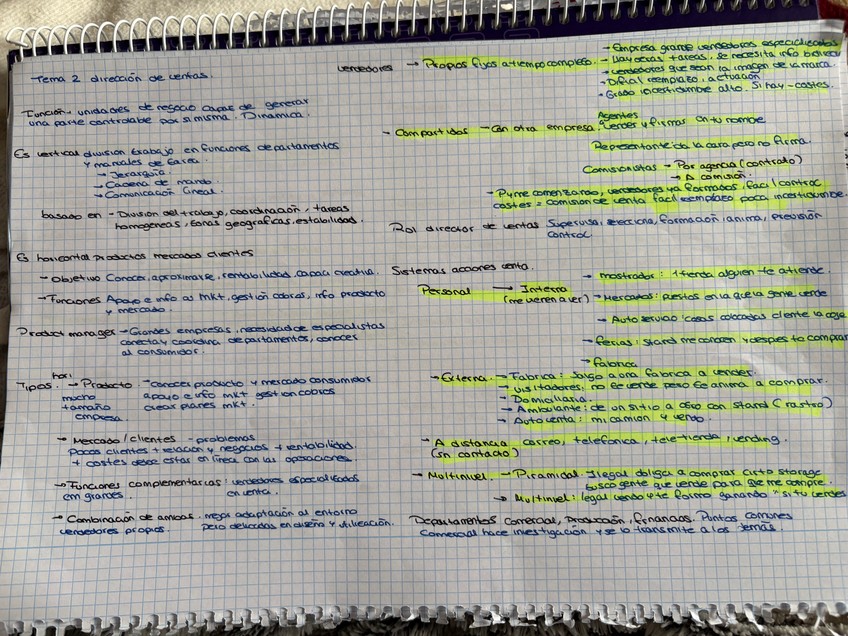 Tema 2 dirección de ventas.
Función, unidades de negocio capaz de generar
una parte controlable por si misma. Dinamica.
Es vertical división trabajo en funciones departamentos
y manuales de tarea.
→ Jerarquía.
→ Cadena de mando.
→ Comunicación lineal.
basado en - División del trabajo, coordinación, tareas
homogeneas, zonas geográficas, estabilidad.
Es horizontal productos mercados clientes
→ Objetivo Conocer, aproximarse, rentabilidad, capaci creativa.
→ Funciones Apoyo e info al mkt, gestión cobros, info producto
y mercado.
Product manager → Grandes empresas, necesidad de especialistas
conecta y coordina departamentos, conocer
al consumidor.
hori
Tipos. → Producto - conocer producto y mercado consumidor
mucho apoyo e info mkt gestion cobros
tamaño crear planes mkt.
empresa
→ Mercado/clientes - problemas
pocos clientes + relación y negocios + rentabilidad.
+ costes debe estar en linea con las operaciones.
→ Funciones complementarias: vendedores especializados
em grandes. en venta.
→ Combinación de ambas. mejor adaptación al entorno
vendedores propios. pero delicadas en diseño y utilización.
vendedores → Propios fijos a tiempo completo.
→ Empresa grande vendedores especializados
→ Hay otras tareas, se necesita info
→ vendedores que sean la imagen de la marca.
→ Dificil reemplazo, actuación
→ Grado incertidumbre alto. Si hay - costes.
- Compartidos - Con otra empresa.
Agentes
Vender y firmas en tu nombre
Representante da la cara pero no firma.
Comisionistas → Por agencia (contrato)
→ A comisión.
→ Pyme comenzando, vendedores ya formados, facil control
costes = comision de venta facil reemplazo poca incertidumbe.
Rol director de ventas Supervisa, selecciona, formación, anima, previsión
control.
Sistemas acciones venta.
Personal → Interna
(me vienen a ver)
→ mostrador: 1 tienda alguien te atiende.
→ Mercados: puestos en la que la gente vende
→ Autoservicio: cosas colocadas cliente la coje
→ ferias: stand me conocen y despues te compran
→ fabrica
→ Externa. → Fabrica: salgo a otra fabrica a vender.
→ visitadores, no se vende pero se anima a comprar.
→ Domiciliaria.
→ Ambulante: de un sitio a otro con stand (rastro)
→ Autoventa: mi camion y vendo.
→ A distancia correo, telefonica, teletienda, vending.
(sn contacto)
→ Multinivel. → Piramidal Ilegal obliga a comprar cirto storage
busco gente que vende para que me compre.
→ Multinivel: legal vendo y te formo ganando % si tu vendes
Departamentos Comercial, Producción, Finanzas. Puntos comunes
Comercial hace investigación y se lo transmite a los demás.